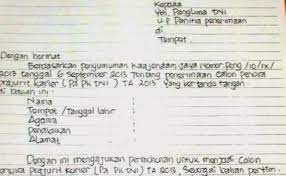 Kepada
Yth. Panglima TNI
U.P Panitia penerimaan
di
Tempat.
Dengan hormat
Berdasarkan pengumuman Kaajendam Jaya Nomor Peng /10/IX/
2013 tanggal 6 September 2013 Tentang penerimaan Calon Perwira
prajurit karier (Pa PK TNI) TA 2013 Yang bertanda tangan
di bawah ini :
Nama :
Tempat /Tanggal lahir :
Agama :
Pendidikan :
ALamat :
Dengan ini mengajukan permohonan untuk menjadi Calon
Perwira Prajurit Karier (Pa PK TNI) TA 2013, Sebagai bahan pertim-